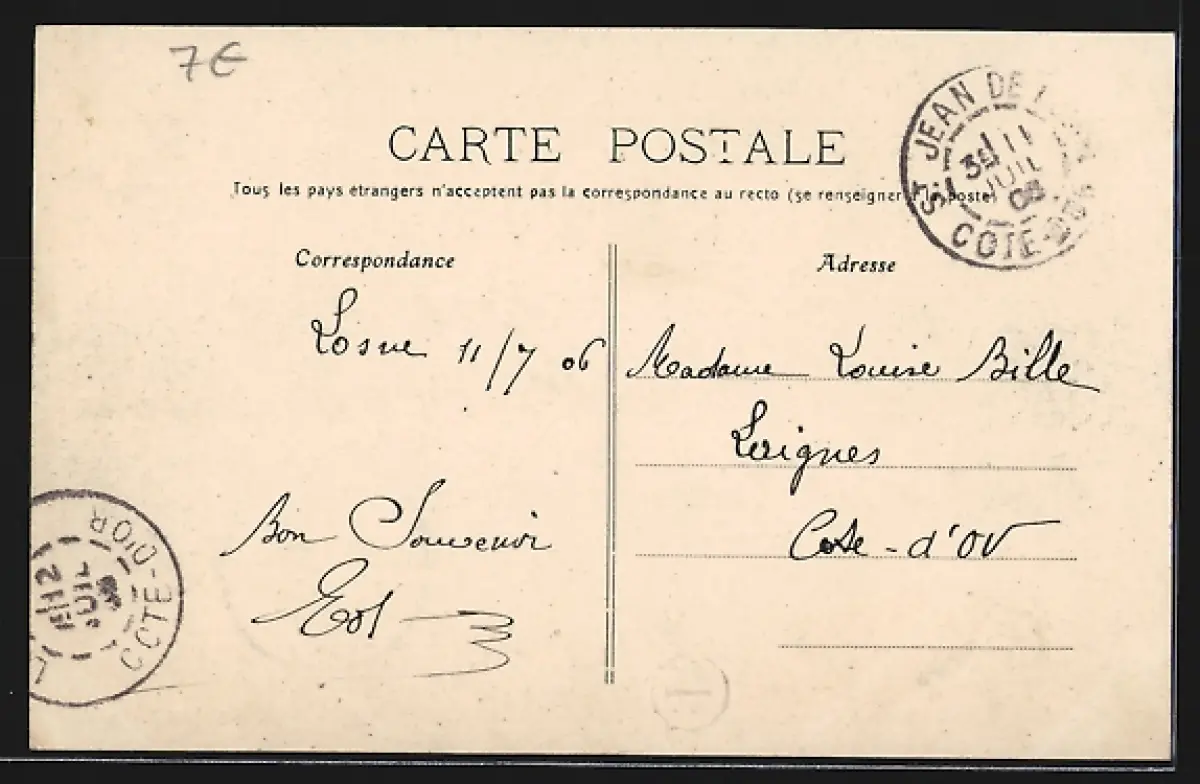 7€
CARTE POSTALE
Tous les pays étrangers n'acceptent pas la correspondance au recto (se renseigner à la poste)
ST JEAN DE
11
JUIL
06
COTE-D'OR
Correspondance
Losne 11/7 06
Bon Souvenir
Adresse
Madame Louise Bille
Laignes
Cote-d'Or
COTE-D'OR
12
JUIL
1